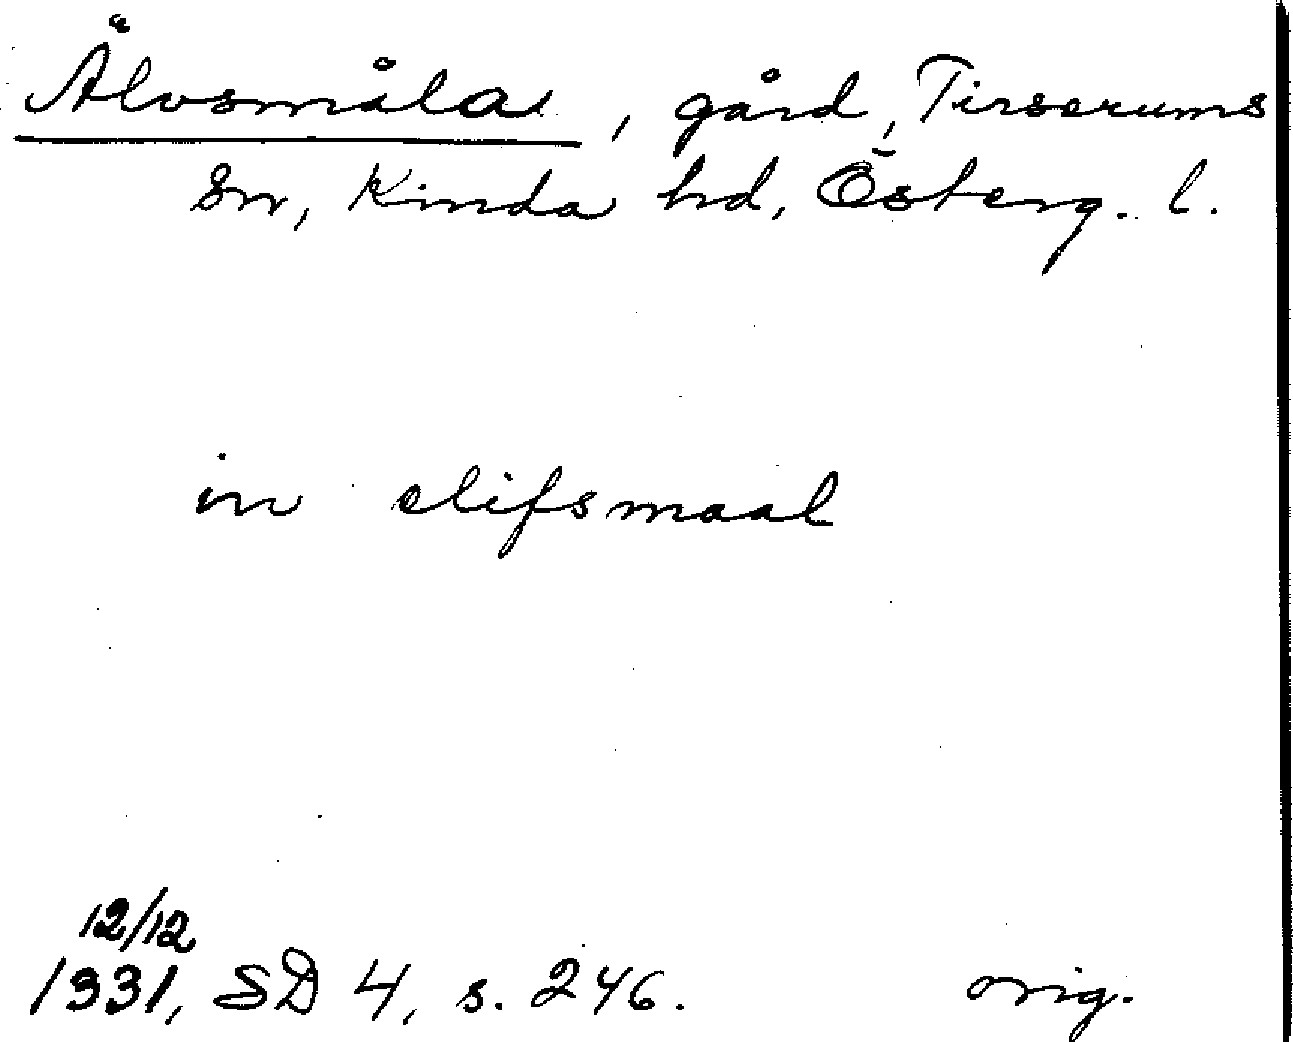 Älvsmåla, gård, Tirserums
sn, Kinda hd, Österg. l.
in elifsmaal
12/12
1331, SD 4, s. 246. orig.